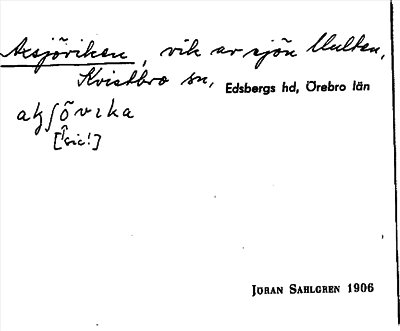 Aksjöviken, vik av sjön Multen,
Kvistbro sn, Edsbergs hd, Örebro län
[sic!]
JÖRAN SAHLGREN 1906